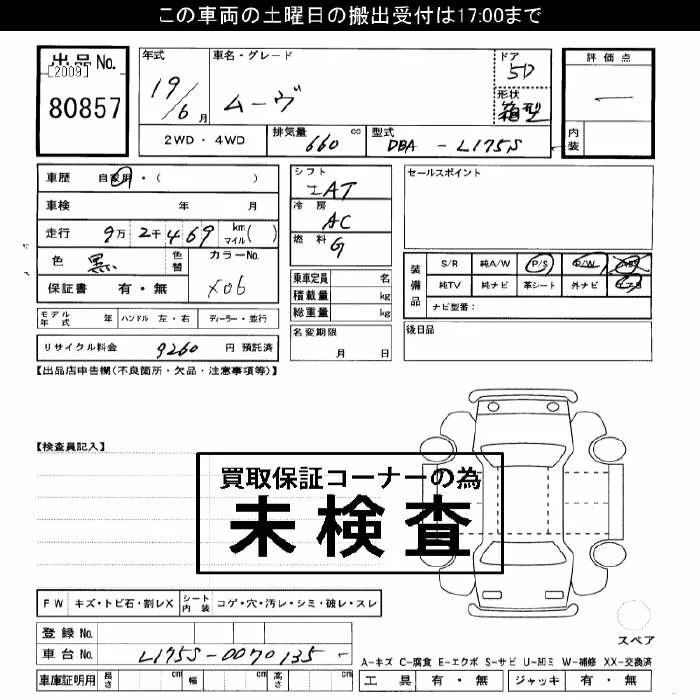 この車両の土曜日の搬出受付は17:00まで
出品No.
[2009]
80857
年式
19/6月
車名・グレード
ムーヴ
ドア
5D
形状
箱型
評価点
―
内装
2WD・4WD
排気量 660 cc
型式 DBA - L175S
車歴 自家用・( )
車検 年 月
走行 9万2千469 km マイル( )
色 黒
色替
カラーNo.
X06
保証書 有・無
モデル年式 年
ハンドル 左・右
ディーラー・並行
リサイクル料金 9260 円 預託済
シフト
AT
冷房
AC
燃料
G
乗車定員 名
積載量 kg
総重量 kg
名変期限
月 日
セールスポイント
装備品
S/R 純A/W P/S P/W ABS
純TV 純ナビ 革シート 外ナビ エアB
ナビ型番:
後日品
【出品店申告欄(不良箇所・欠品・注意事項等)】
【検査員記入】
買取保証コーナーの為
未検査
FW キズ・トビ石・割レX
シート内装 コゲ・穴・汚レ・シミ・破レ・スレ
登録No.
車台No. L175S-0070135
車庫証明用 長さ cm 幅 cm 高さ cm
スペア
A-キズ C-腐食 E-エクボ S-サビ U-凹ミ W-補修 XX-交換済
工具 有・無 ジャッキ 有・無